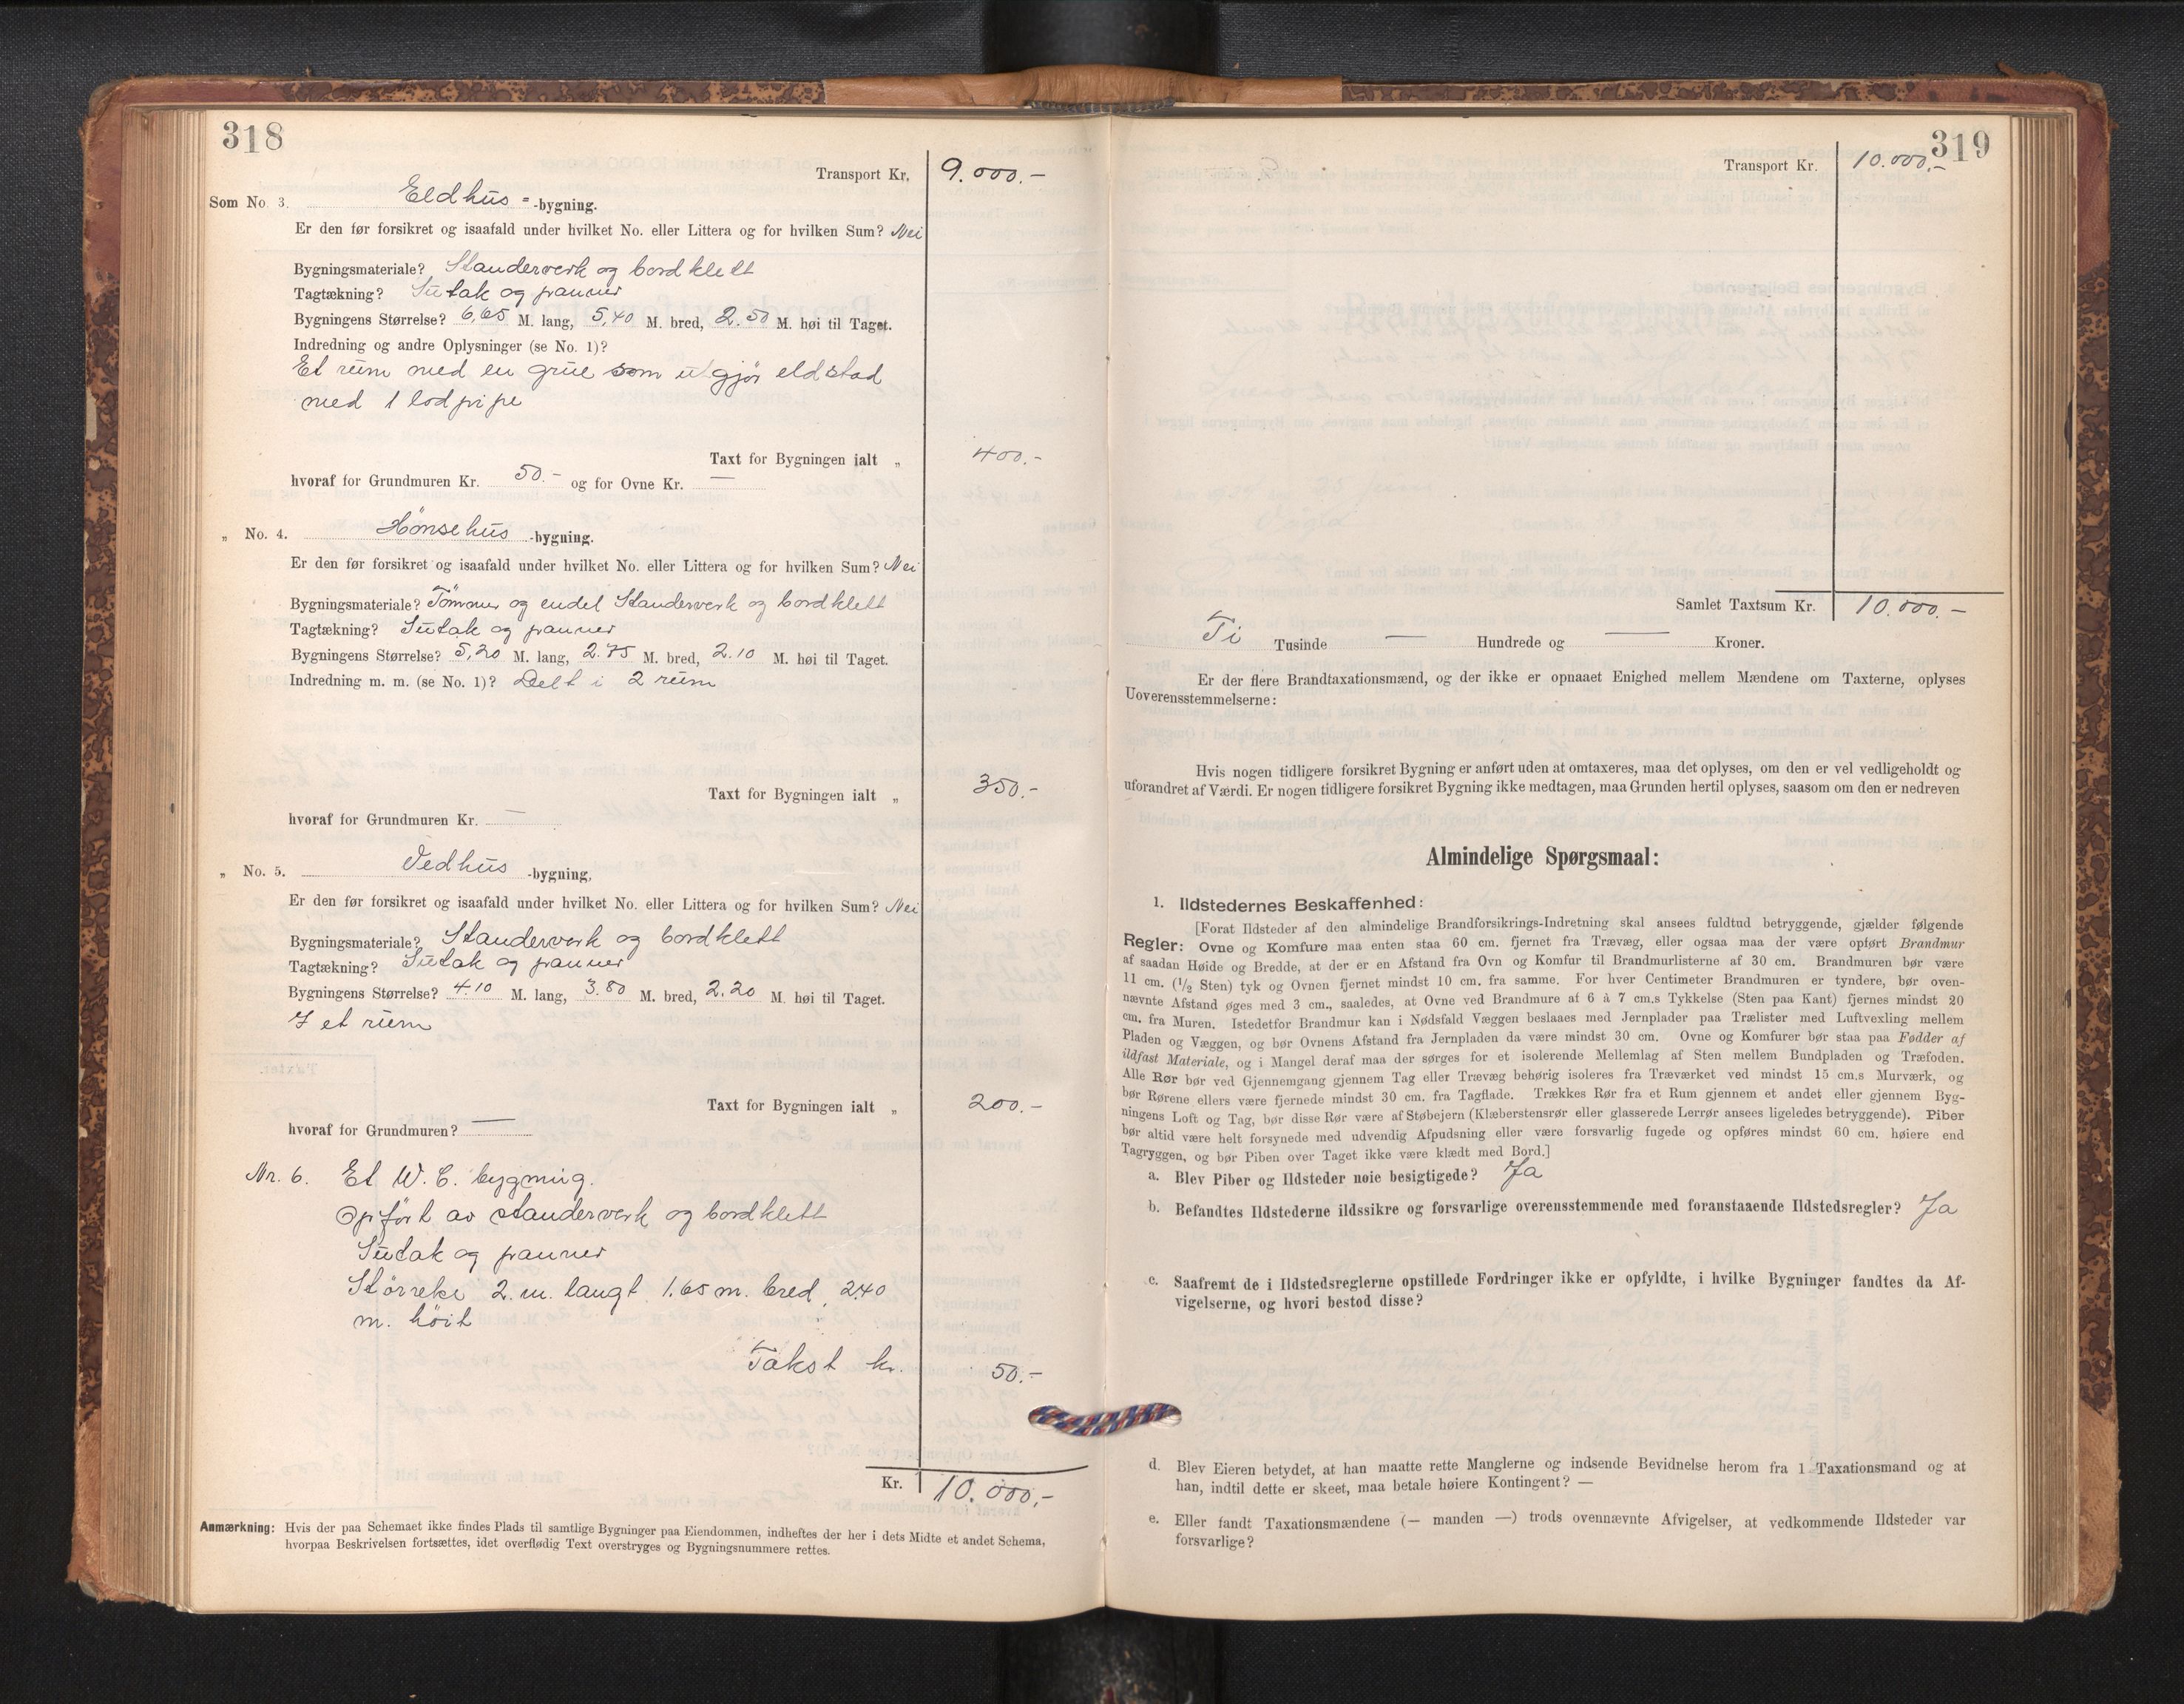 318
Transport Kr. 9.000.-
Som No. 3. Eldhus -bygning.
Er den før forsikret og isaafald under hvilket No. eller Littera og for hvilken Sum? Nei
Bygningsmateriale? Standerverk og bordklett
Tagtækning? Sutak og panner
Bygningens Størrelse? 6,65 M. lang, 5,40 M. bred, 2.50 M. høi til Taget.
Indredning og andre Oplysninger (se No. 1)?
Et rum med en grue som utgjør eldstad
med 1 lodpipe
Taxt for Bygningen ialt „ 400.-
hvoraf for Grundmuren Kr. 50.- og for Ovne Kr. —
„ No. 4. Hønsehus -bygning.
Er den før forsikret og isaafald under hvilket No. eller Littera og for hvilken Sum? Nei
Bygningsmateriale? Tømmer og endel Standerverk og bordklett
Tagtækning? Sutak og panner
Bygningens Størrelse? 5,20 M. lang, 2.75 M. bred, 2.10 M. høi til Taget.
Indredning m. m. (se No. 1)? Delt i 2 rum
Taxt for Bygningen ialt „ 350.-
hvoraf for Grundmuren Kr. —
„ No. 5. Vedhus -bygning,
Er den før forsikret og isaafald under hvilket No. eller Littera og for hvilken Sum? Nei
Bygningsmateriale? Standerverk og bordklett
Tagtækning? Sutak og panner
Bygningens Størrelse? 4.10 M. lang, 3.80 M. bred, 2.20 M. høi til Taget.
I et rum
Taxt for Bygningen ialt „ 200.-
hvoraf for Grundmuren? —
Nr. 6. Et W. C. bygning.
Opført av standerverk og bordklett
Sutak og panner
Størreke 2. m. langt 1.65 m. bred, 2.40
m. høit
Takst kr. 50.-
Kr. 10.000,-
Anmærkning: Hvis der paa Schemaet ikke findes Plads til samtlige Bygninger paa Eiendommen, indheftes der her i dets Midte et andet Schema,
hvorpaa Beskrivelsen fortsættes, idet overflødig Text overstryges og Bygningsnummere rettes.
319
Transport Kr. 10.000,-
Samlet Taxtsum Kr. 10.000.-
Ti Tusinde — Hundrede og — Kroner.
Er der flere Brandtaxationsmænd, og der ikke er opnaaet Enighed mellem Mændene om Taxterne, oplyses
Uoverensstemmelserne:
Hvis nogen tidligere forsikret Bygning er anført uden at omtaxeres, maa det oplyses, om den er vel vedligeholdt og
uforandret af Værdi. Er nogen tidligere forsikret Bygning ikke medtagen, maa Grunden hertil oplyses, saasom om den er nedreven
Almindelige Spørgsmaal:
1. Ildstedernes Beskaffenhed:
[Forat Ildsteder af den almindelige Brandforsikrings-Indretning skal ansees fuldtud betryggende, gjælder følgende
Regler: Ovne og Komfure maa enten staa 60 cm. fjernet fra Trævæg, eller ogsaa maa der være opført Brandmur
af saadan Høide og Bredde, at der er en Afstand fra Ovn og Komfur til Brandmurlisterne af 30 cm. Brandmuren bør være
11 cm. (1/2 Sten) tyk og Ovnen fjernet mindst 10 cm. fra samme. For hver Centimeter Brandmuren er tyndere, bør oven-
nævnte Afstand øges med 3 cm., saaledes, at Ovne ved Brandmure af 6 à 7 cm.s Tykkelse (Sten paa Kant) fjernes mindst 20
cm. fra Muren. Istedetfor Brandmur kan i Nødsfald Væggen beslaaes med Jernplader paa Trælister med Luftvexling mellem
Pladen og Væggen, og bør Ovnens Afstand fra Jernpladen da være mindst 30 cm. Ovne og Komfurer bør staa paa Fødder af
ildfast Materiale, og i Mangel deraf maa der sørges for et isolerende Mellemlag af Sten mellem Bundpladen og Træfoden.
Alle Rør bør ved Gjennemgang gjennem Tag eller Trævæg behørig isoleres fra Træværket ved mindst 15 cm.s Murværk, og
bør Rørene ellers være fjernede mindst 30 cm. fra Tagflade. Trækkes Rør fra et Rum gjennem et andet eller gjennem Byg-
ningens Loft og Tag, bør disse Rør være af Støbejern (Klæberstensrør eller glasserede Lerrør ansees ligeledes betryggende). Piber
bør altid være helt forsynede med udvendig Afpudsning eller være forsvarlig fugede og opføres mindst 60 cm. høiere end
Tagryggen, og bør Piben over Taget ikke være klædt med Bord.]
a. Blev Piber og Ildsteder nøie besigtigede? Ja
b. Befandtes Ildstederne ildssikre og forsvarlige overensstemmende med foranstaaende Ildstedsregler? Ja
c. Saafremt de i Ildstedsreglerne opstillede Fordringer ikke er opfyldte, i hvilke Bygninger fandtes da Af-
vigelserne, og hvori bestod disse?
d. Blev Eieren betydet, at han maatte rette Manglerne og indsende Bevidnelse herom fra 1 Taxationsmand og at
han, indtil dette er skeet, maa betale høiere Kontingent? —
e. Eller fandt Taxationsmændene (— manden —) trods ovennævnte Afvigelser, at vedkommende Ildsteder var
forsvarlige?